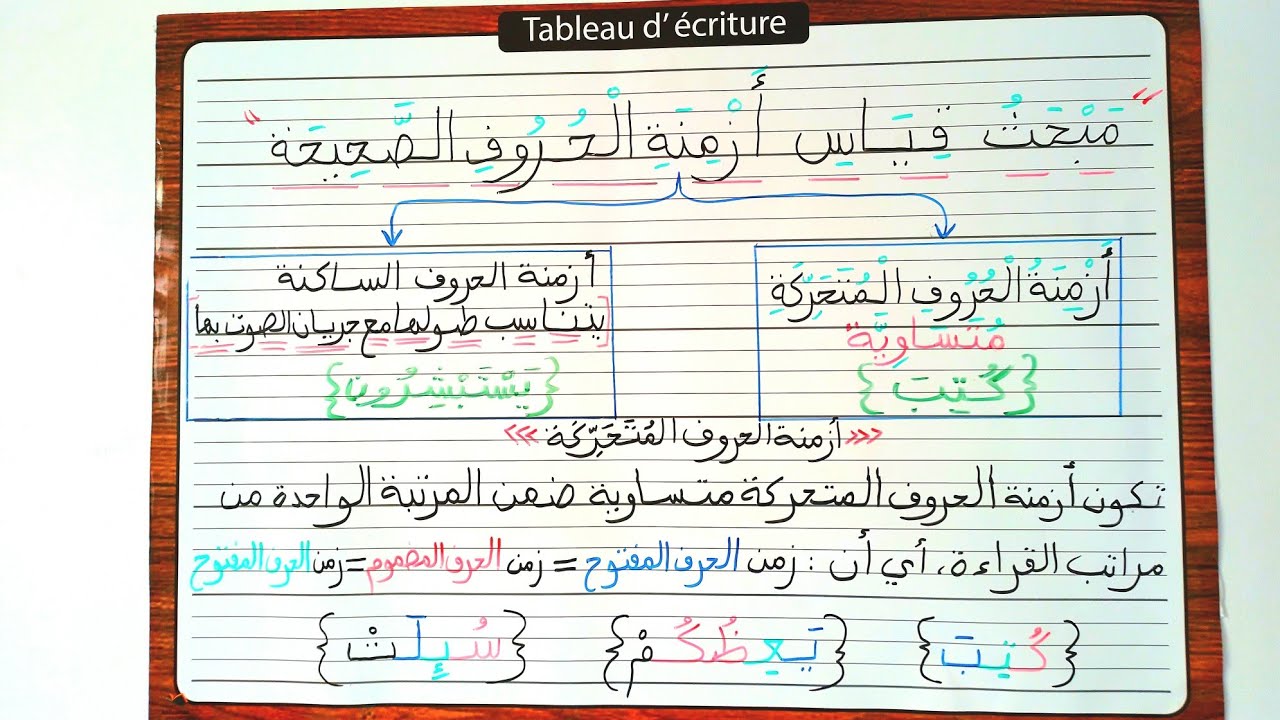 Tableau d' écriture
" مَبْحَثُ قِيَاسِ أَزْمِنَةِ الْحُرُوفِ الصَّحِيحَة "
أَزْمِنَةُ الْحُرُوفِ الْمُتَحَرِّكَةِ
مُتَسَاوِيَّة
{كُتِبَ}
أزمنة الحروف الساكنة
[يتناسب طولها مع جريان الصوت بها]
{يَسْتَبْشِرُون}
<<<أزمنة الحروف المُتَحَرِّكَة>>>
تكون أزمنة الحروف المتحركة متساوية ضمن المرتبة الواحدة من
مراتب القراءة، أي أن : زمن الحرف المفتوح = زمن الحرف المضموم = زمن الحرف المفتوح
{كُتِبَ} {يَعِظُكُمْ} {سُئِلَتْ}